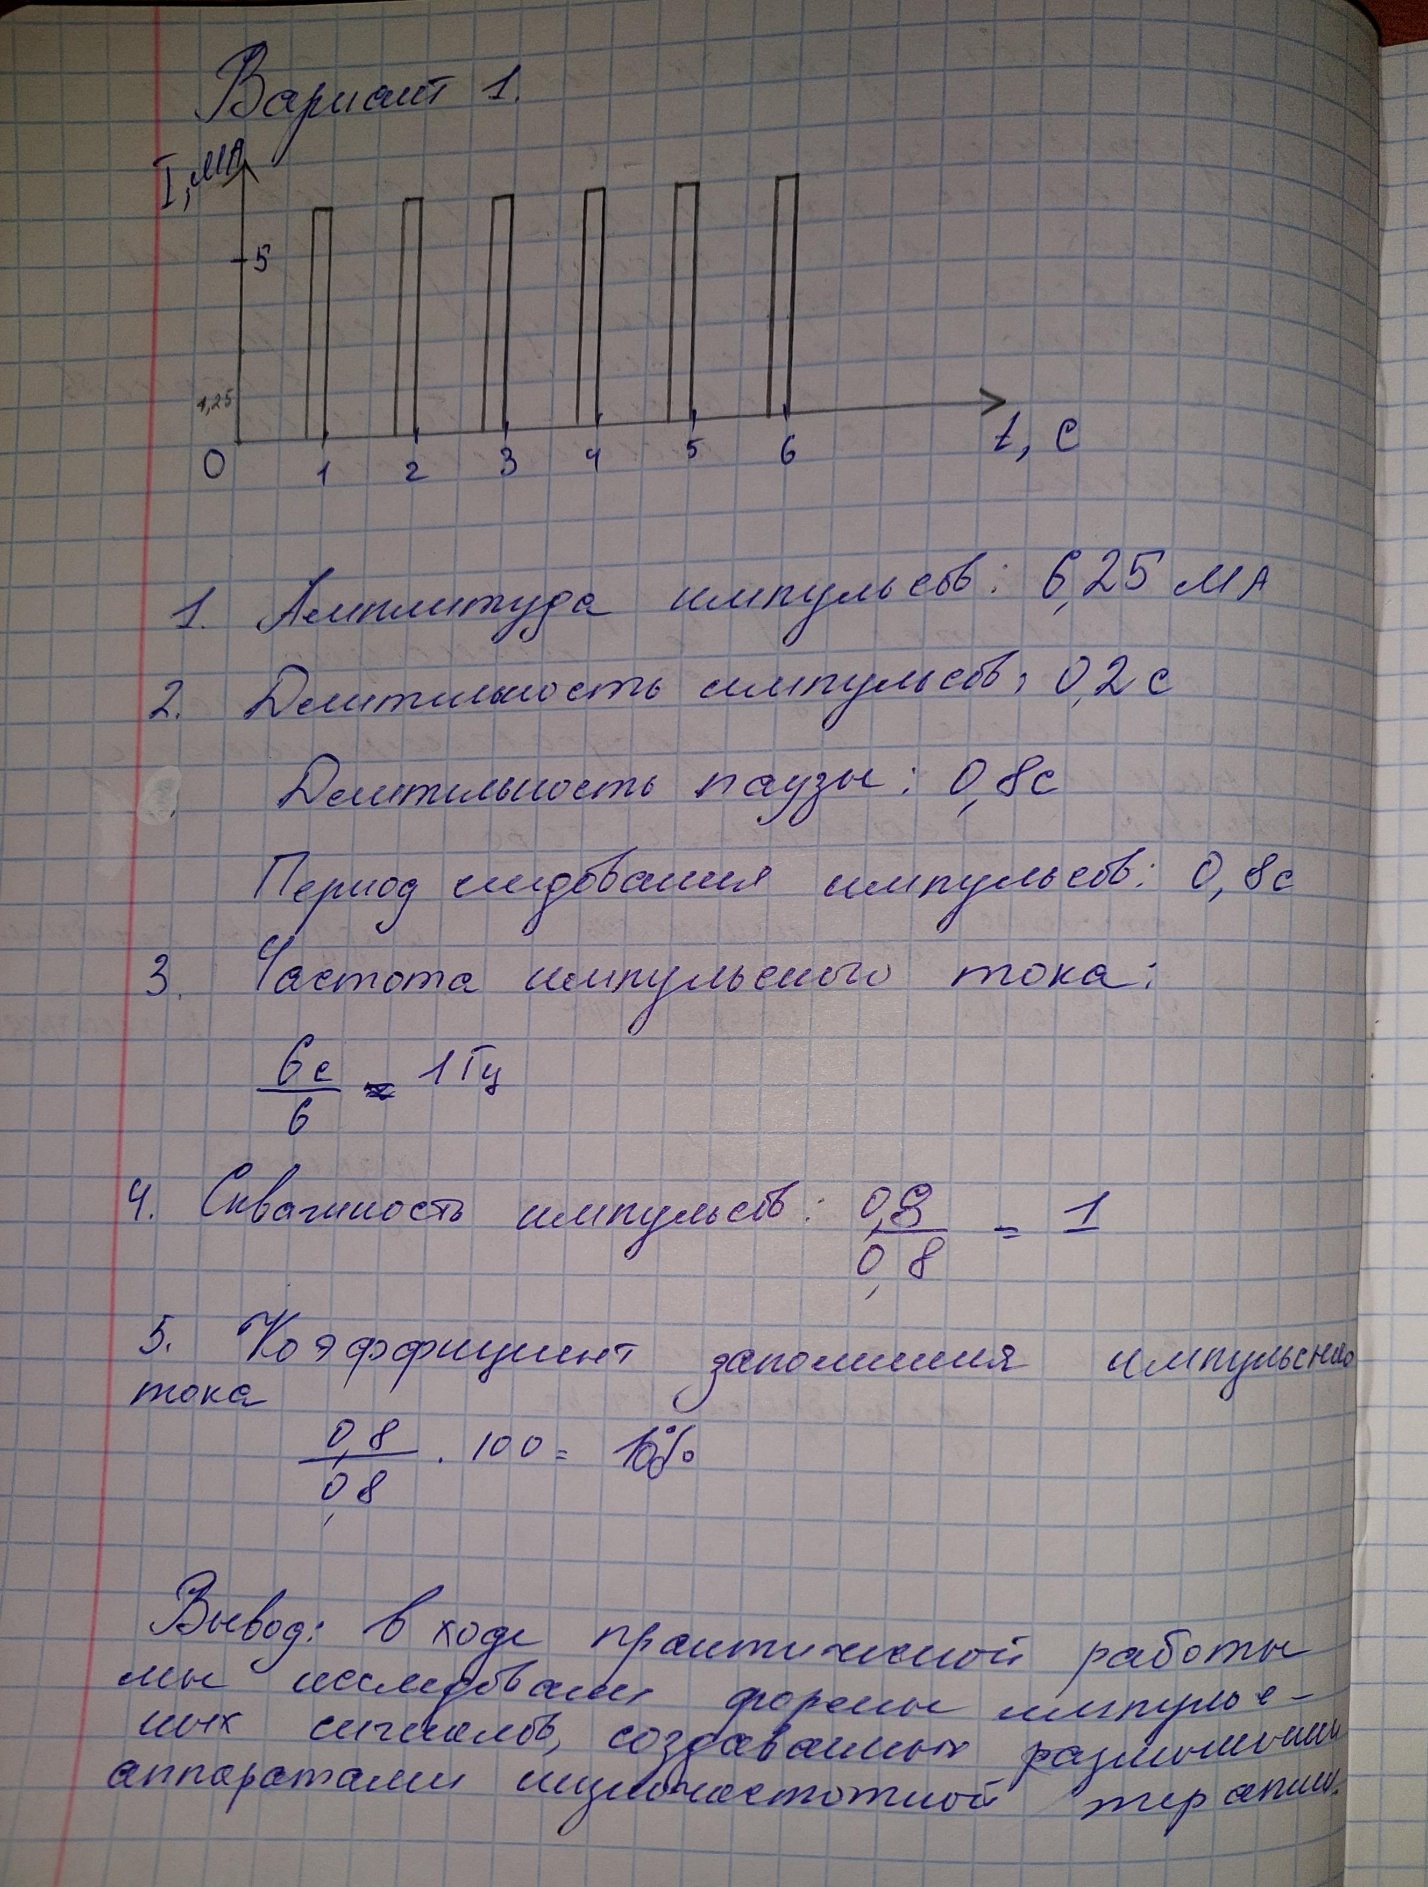 Вариант 1.
I, мА
5
1,25
0 1 2 3 4 5 6
t, с
1. Амплитуда импульсов: 6,25 мА
2. Длительность импульсов: 0,2 с
Длительность паузы: 0,8с
Период следования импульсов: 0,8с
3. Частота импульсного тока:
6с
6
= 1 Гц
4. Скважность импульсов: 0,8
0,8
= 1
5. Коэффициент заполнения импульсного
тока
0,8
0,8
· 100 =
Вывод: в ходе практической работы
мы исследовали формы импульс-
ных сигналов, создаваемых различными
аппаратами низкочастотной терапии.